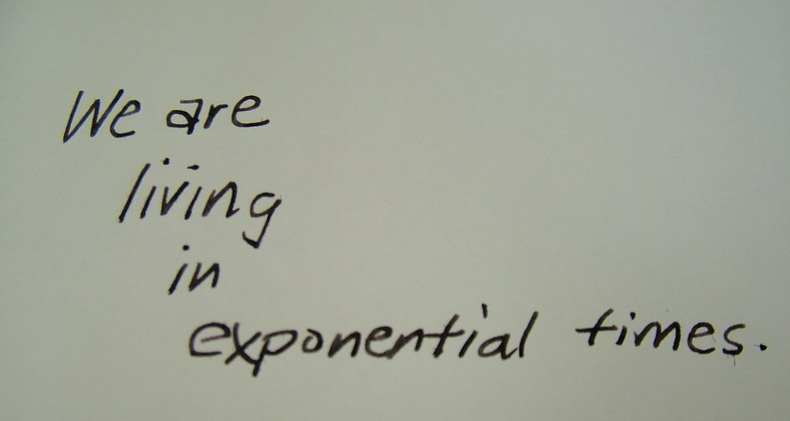 We are
living
in
exponential times.